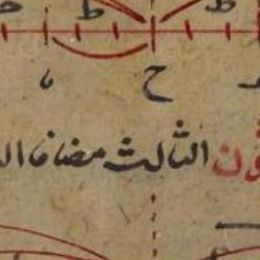 ط ط
ح
ون الثالث مضاف ال